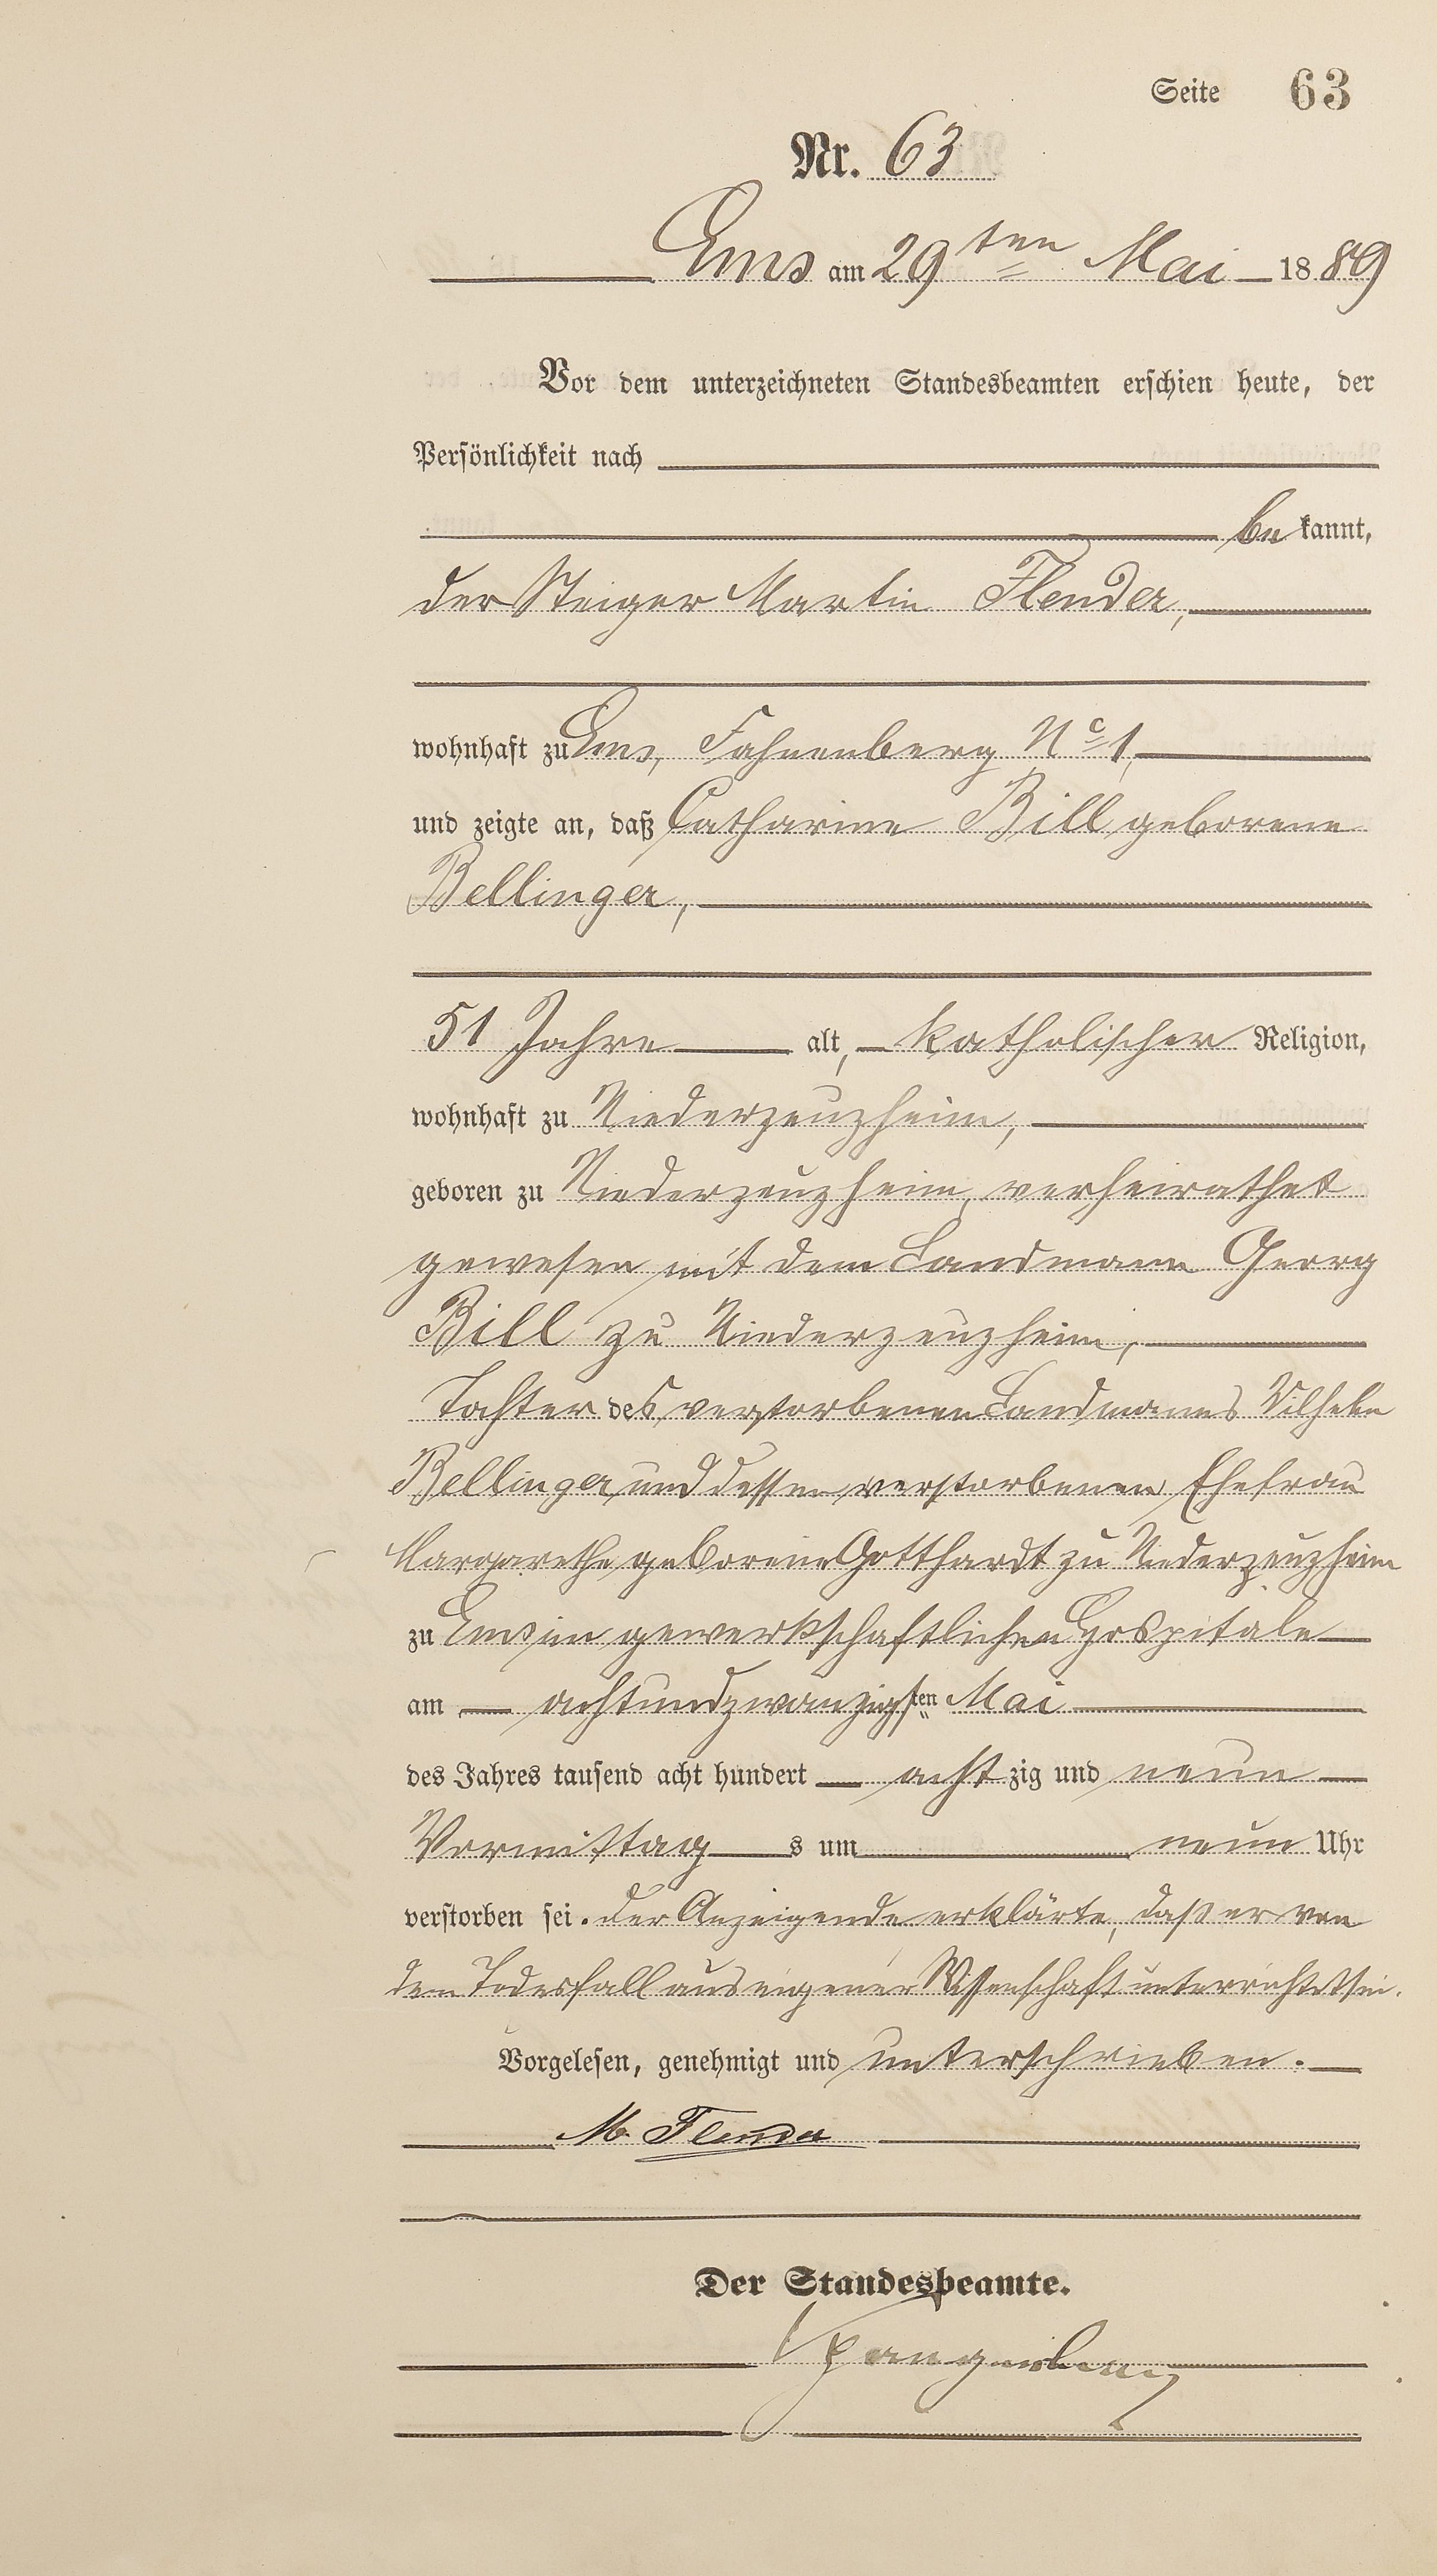 Seite 63
Nr. 63
Ems am 29ten Mai 1889
Vor dem unterzeichneten Standesbeamten erschien heute, der
Persönlichkeit nach
be kannt,
der Steiger Martin Flender,
wohnhaft zu Ems, Fahnenberg No 1,
und zeigte an, daß Catharine Bill geborene
Bellinger,
51 Jahre alt, katholischer Religion,
wohnhaft zu Niederzeuzheim,
geboren zu Niederzeuzheim, verheirathet
gewesen mit dem Landmann Georg
Bill zu Niederzeuzheim,
Tochter des verstorbenen Landmanns Wilhelm
Bellinger und dessen verstorbenen Ehefrau
Margarethe geborene Gotthardt zu Niederzeuzheim
zu Ems im gewerkschaftlichen Hospitale
am achtundzwanzigsten Mai
des Jahres tausend acht hundert acht zig und neun
Vormittag s um neun Uhr
verstorben sei. Der Anzeigende erklärte, daß er von
dem Todesfall aus eigener Wissenschaft unterrichtet sei.
Vorgelesen, genehmigt und unterschrieben.
M. Flender
Der Standesbeamte.
Spangenberg